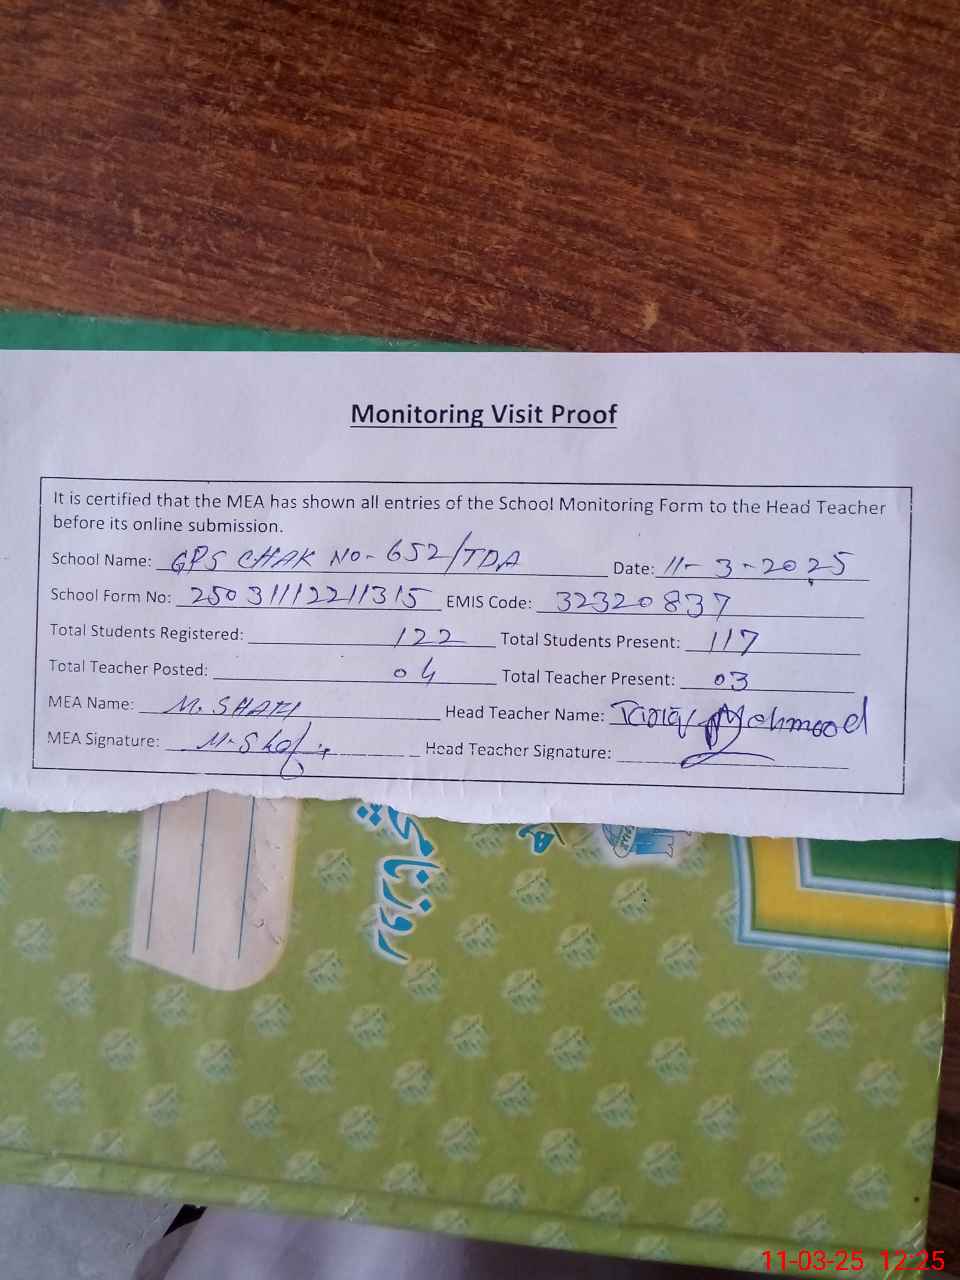 Monitoring Visit Proof
It is certified that the MEA has shown all entries of the School Monitoring Form to the Head Teacher
before its online submission.
School Name: GPS CHAK NO-652/TDA Date: 11-3-2025
School Form No: 25031112211315 EMIS Code: 32320837
Total Students Registered: 122 Total Students Present: 117
Total Teacher Posted: 04 Total Teacher Present: 03
MEA Name: M. SHAFI Head Teacher Name: Tariq Mahmood
MEA Signature: M-Shafi Head Teacher Signature:
روزنامچہ
11-03-25 12:25